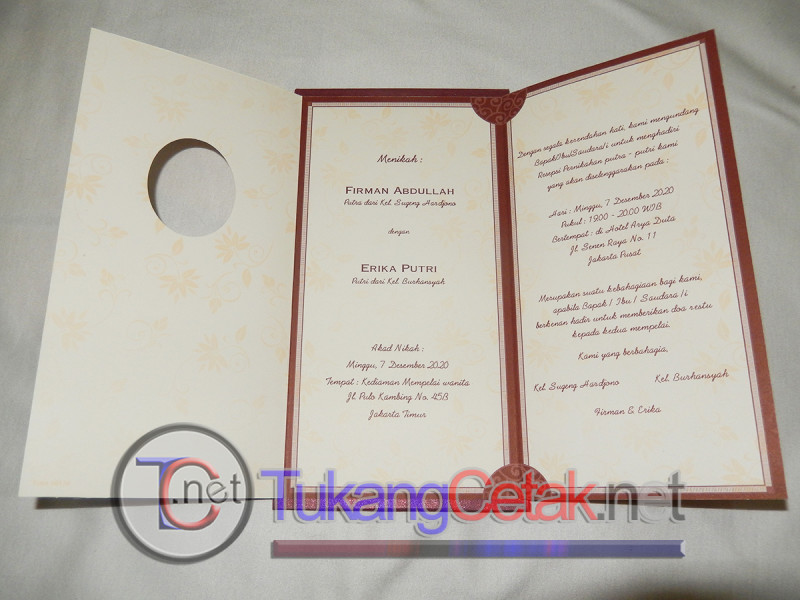 Menikah :
FIRMAN ABDULLAH
Putra dari Kel. Sugeng Hardjono
dengan
ERIKA PUTRI
Putri dari Kel. Burhansyah
Akad Nikah :
Minggu, 7 Desember 2020
Tempat : Kediaman Mempelai wanita
Jl. Pulo Kambing No. 45B
Jakarta Timur
Dengan segala kerendahan hati, kami mengundang
Bapak/Ibu/Saudara/i untuk menghadiri
Resepsi Pernikahan putra - putri kami
yang akan diselenggarakan pada :
Hari : Minggu, 7 Desember 2020
Pukul : 19.00 - 20.00 WIB
Bertempat : di Hotel Arya Duta
Jl. Senen Raya No. 11
Jakarta Pusat
Merupakan suatu kebahagiaan bagi kami,
apabila Bapak / Ibu / Saudara /i
berkenan hadir untuk memberikan doa restu
kepada kedua mempelai.
Kami yang berbahagia,
Kel. Sugeng Hardjono Kel. Burhansyah
Firman & Erika
TC.net TukangCetak.net